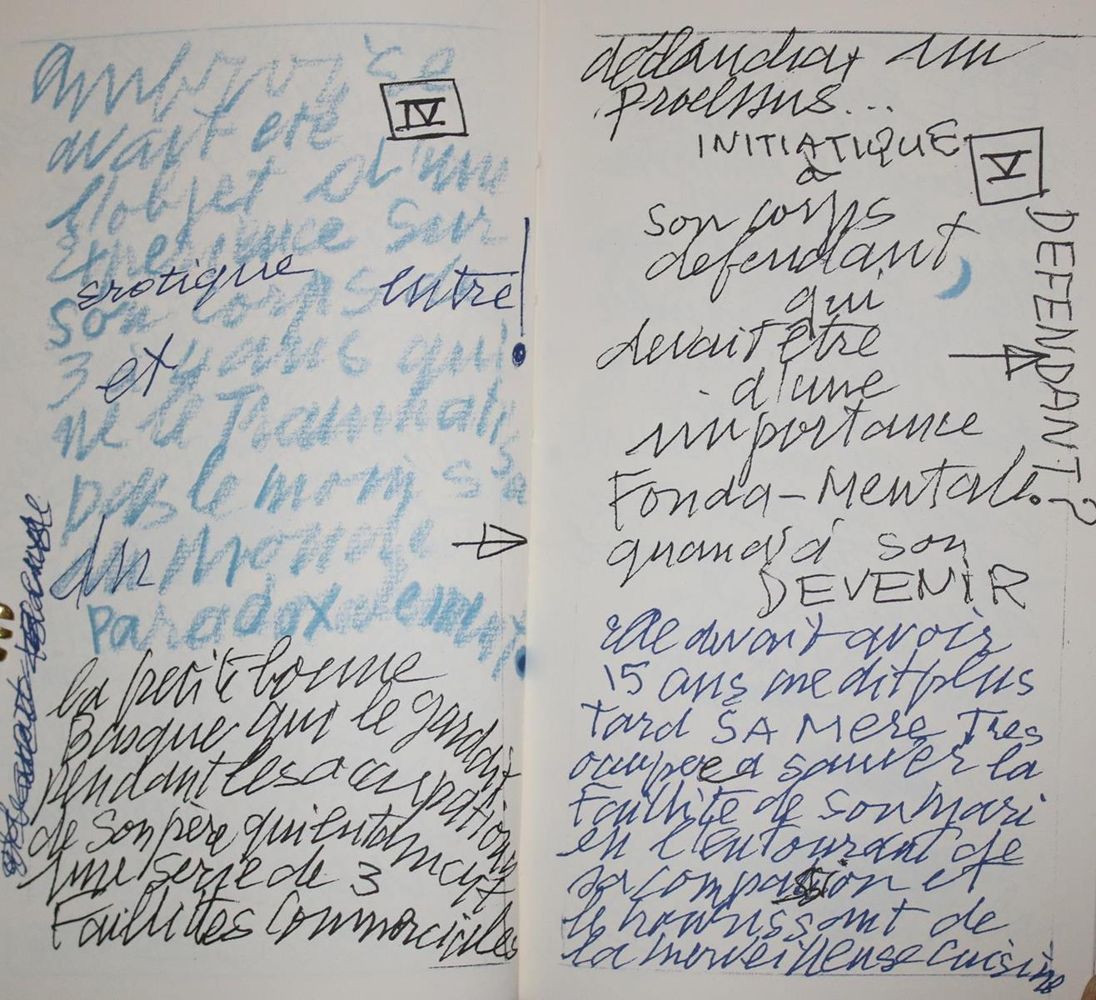 Ambroise
IV
avait été
l'objet d'une
Expérience sur
erotique entre
son corps
3 ans qui
et
ne le Traumati
pas le moin s'a
du monde
Paradoxalement
la petite bonne
Basque qui le gardait
pendant les occupations
de son père qui entamait
Une serie de 3
Faillites Commerciales
déclancha un
processus...
INITIATIQUE
VI
à
son corps
defendant
DEFENDANT?
qui
devait être
d'une
importance
Fonda-Mentale.
quand à son
DEVENIR
elle devait avoir
15 ans me dit plus
Tard SA Mere Tres
occupée a sauver la
Faillite de son Mari
en l'entourant de
sa compassion et
le nourissant de
la merveilleuse cuisine